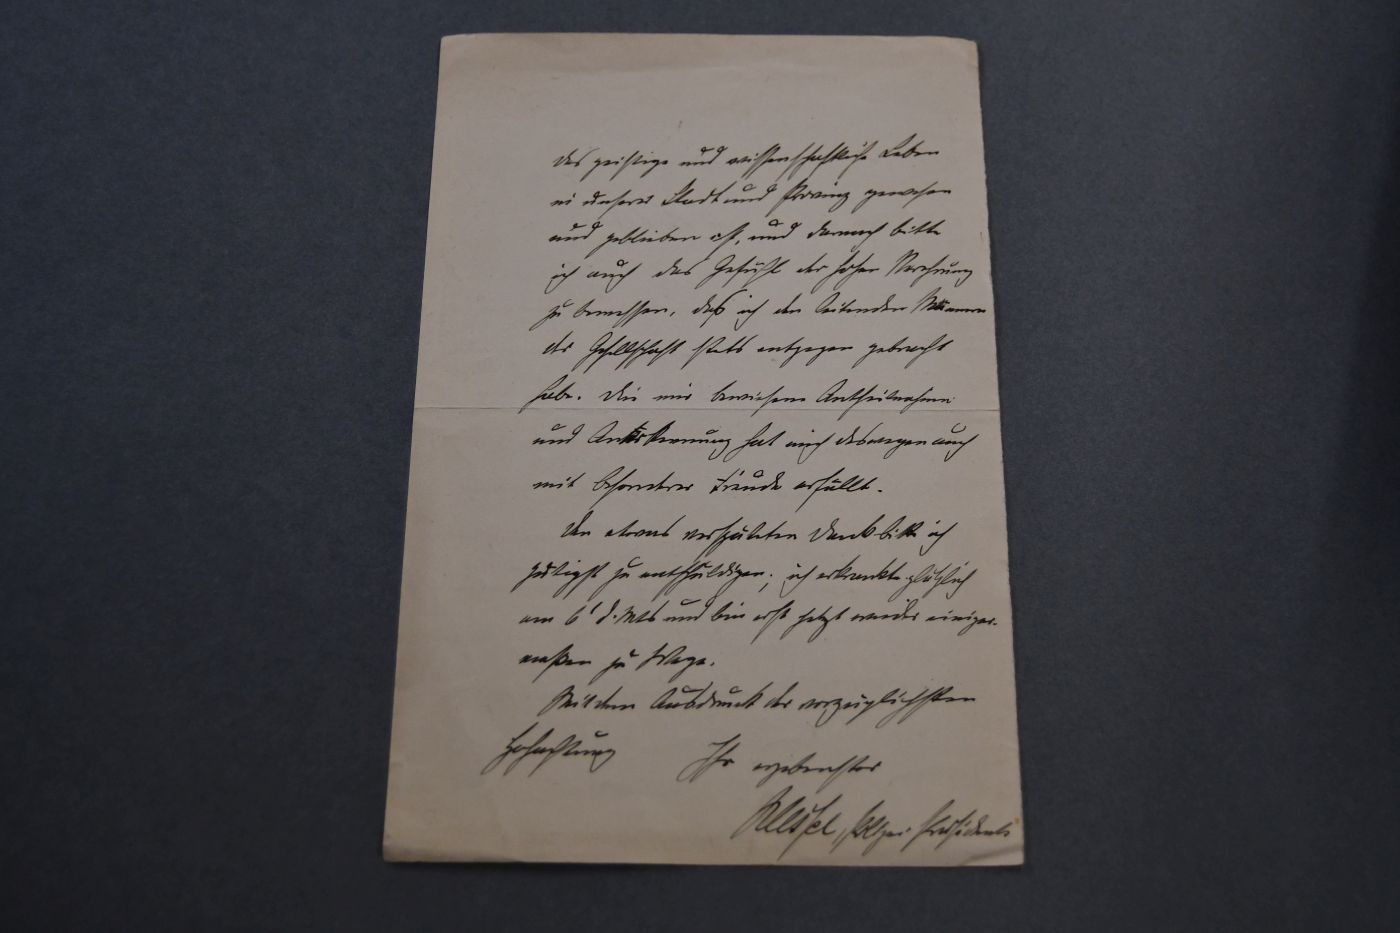 das geistige und wissenschaftliche Leben
in unserer Stadt und Provinz gewesen
und geblieben ist, und darnach bitte
ich auch das Gefühl der hohen Verehrung
zu bemessen, das ich den leitenden Männern
der Gesellschaft stets entgegen gebracht
habe. Die mir bewiesene Antheilnahme
und Anerkennung hat mich deswegen auch
mit besonderer Freude erfüllt.
Den etwas verspäteten Dank bitte ich
gütigst zu entschuldigen; ich erkrankte plötzlich
am 6t d. Mts und bin erst jetzt wieder einiger-
maßen zu Wege.
Mit dem Ausdruck der vorzüglichsten
Hochachtung Ihr ergebenster
Polizei Präsident